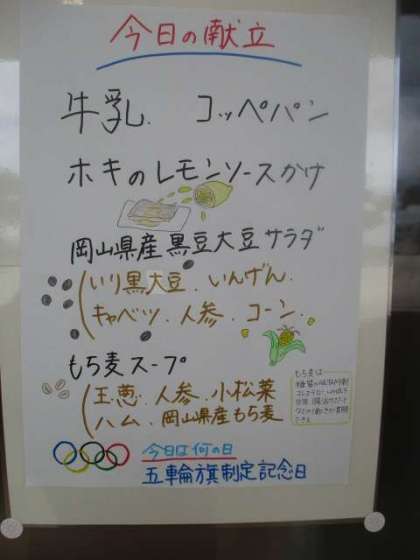 今日の献立
牛乳. コッペパン
ホキのレモンソースかけ
岡山県産黒豆大豆サラダ
(いり黒大豆. いんげん.
キャベツ. 人参. コーン.
もち麦スープ
(玉葱. 人参. 小松菜
ハム. 岡山県産もち麦
もち麦は
今日は何の日
五輪旗制定記念日